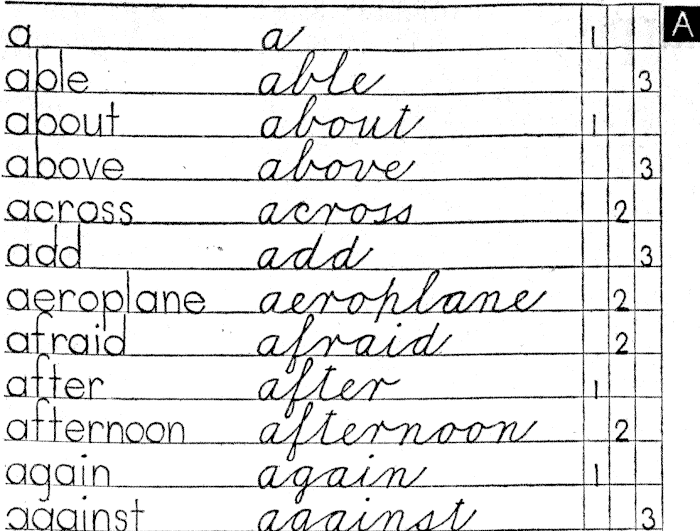 a a 1 A
able able 3
about about 1
above above 3
across across 2
add add 3
aeroplane aeroplane 2
afraid afraid 2
after after 1
afternoon afternoon 2
again again 1
against against 3